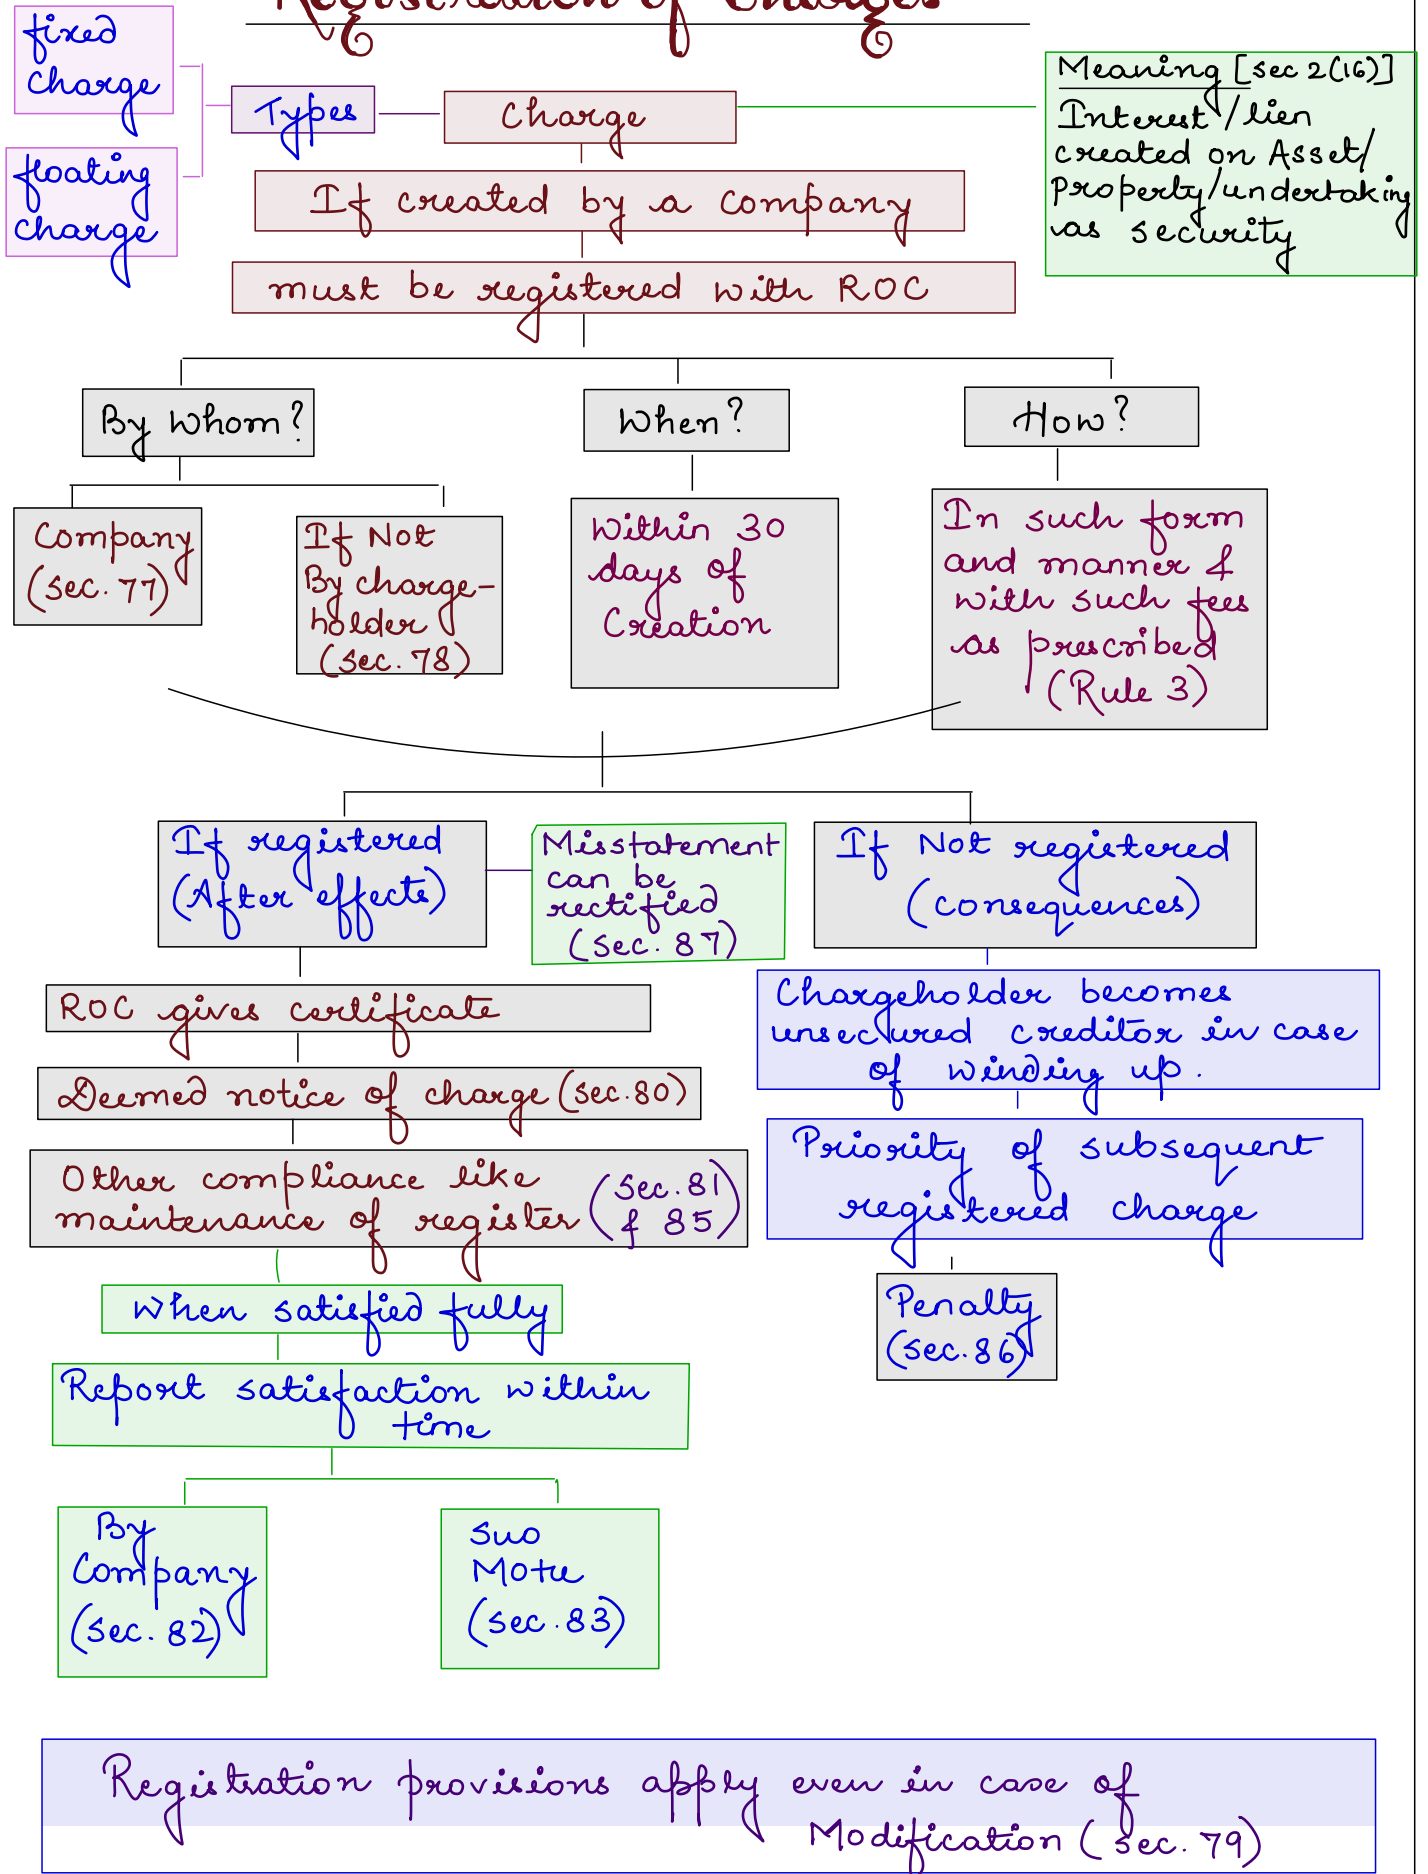 Registration of Charges
fixed
charge
floating
charge
Types
Charge
Meaning [Sec 2(16)]
Interest/lien
created on Asset/
Property/undertaking
as security
If created by a Company
must be registered with ROC
By Whom?
When?
How?
Company
(Sec. 77)
If Not
By charge-
holder
(Sec. 78)
Within 30
days of
Creation
In such form
and manner &
with such fees
as prescribed
(Rule 3)
If registered
(After effects)
Misstatement
can be
rectified
(Sec. 87)
If Not registered
(consequences)
ROC gives certificate
Deemed notice of charge (Sec. 80)
Other compliance like
maintenance of register
(Sec. 81
& 85)
When satisfied fully
Report satisfaction within
time
By
Company
(Sec. 82)
Suo
Motu
(Sec. 83)
Chargeholder becomes
unsecured creditor in case
of winding up.
Priority of subsequent
registered charge
Penalty
(Sec. 86)
Registration provisions apply even in case of
Modification (Sec. 79)